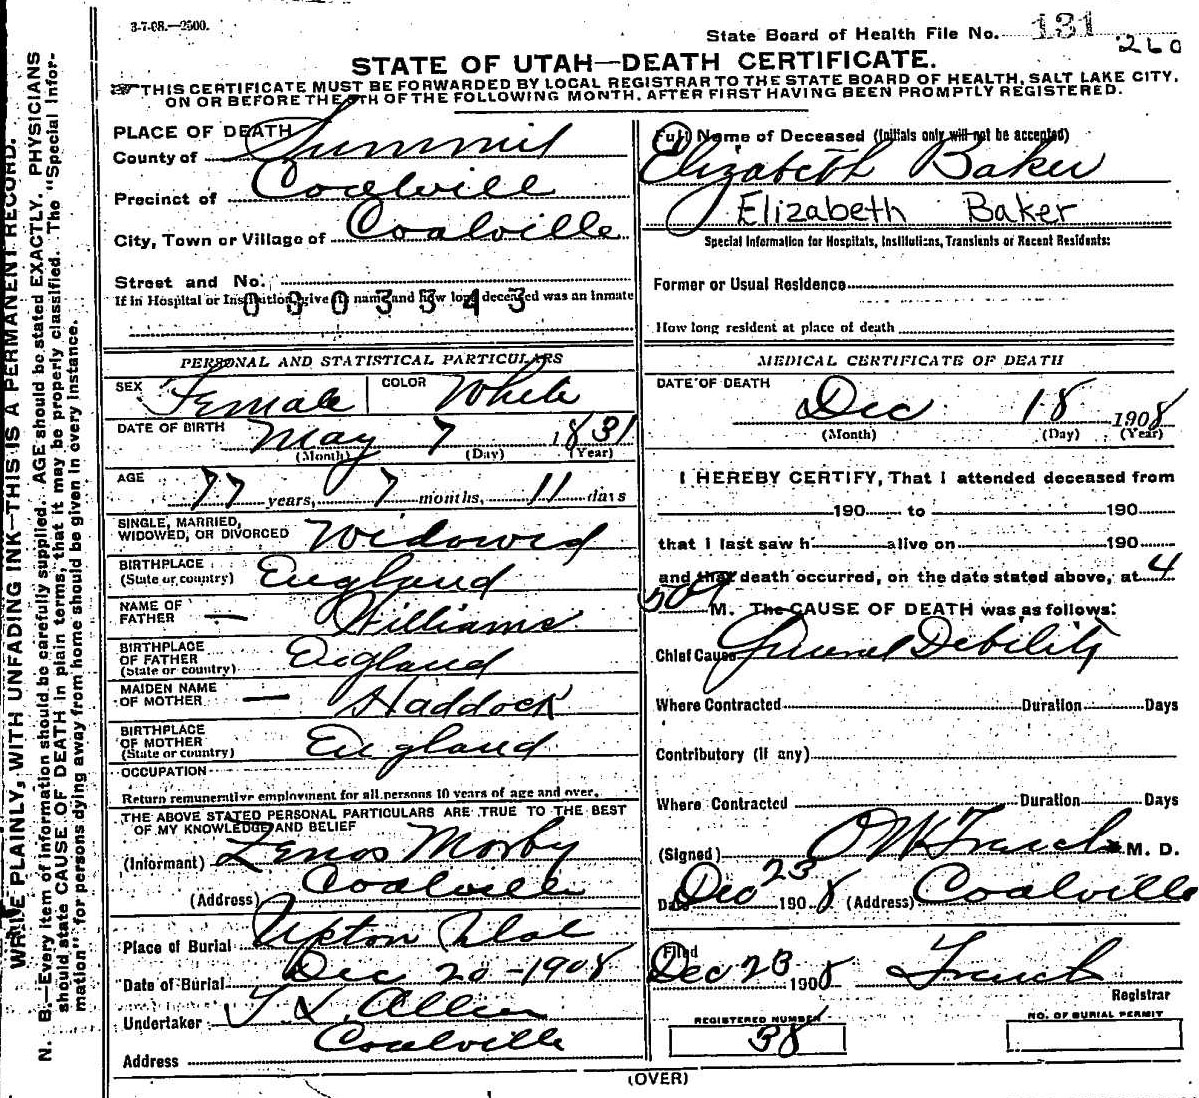 3-7-08.—2500.
State Board of Health File No. 131
260
STATE OF UTAH—DEATH CERTIFICATE.
THIS CERTIFICATE MUST BE FORWARDED BY LOCAL REGISTRAR TO THE STATE BOARD OF HEALTH, SALT LAKE CITY,
ON OR BEFORE THE 5TH OF THE FOLLOWING MONTH, AFTER FIRST HAVING BEEN PROMPTLY REGISTERED.
WRITE PLAINLY, WITH UNFADING INK—THIS IS A PERMANENT RECORD.
N. B.—Every item of information should be carefully supplied. AGE should be stated EXACTLY. PHYSICIANS
should state CAUSE OF DEATH in plain terms, that it may be properly classified. The "Special Infor-
mation" for persons dying away from home should be given in every instance.
PLACE OF DEATH
County of Summit
Precinct of Coalvill
City, Town or Village of Coalville
Street and No.
If in Hospital or Institution, give its name and how long deceased was an inmate
0803343
PERSONAL AND STATISTICAL PARTICULARS
SEX Female COLOR White
DATE OF BIRTH May 7 1831
(Month) (Day) (Year)
AGE 77 years, 7 months, 11 days
SINGLE, MARRIED,
WIDOWED, OR DIVORCED Widowed
BIRTHPLACE
(State or country) England
NAME OF
FATHER — Williams
BIRTHPLACE
OF FATHER
(State or country) England
MAIDEN NAME
OF MOTHER — Haddock
BIRTHPLACE
OF MOTHER
(State or country) England
OCCUPATION
Return remunerative employment for all persons 10 years of age and over.
THE ABOVE STATED PERSONAL PARTICULARS ARE TRUE TO THE BEST
OF MY KNOWLEDGE AND BELIEF
(Informant) Zenos Morby
(Address) Coalville
Place of Burial Upton Utah
Date of Burial Dec 20-1908
Undertaker T. L. Allen
Coalville
Address
Full Name of Deceased (Initials only will not be accepted)
Elizabeth Baker
Elizabeth Baker
Special Information for Hospitals, Institutions, Transients or Recent Residents:
Former or Usual Residence
How long resident at place of death
MEDICAL CERTIFICATE OF DEATH
DATE OF DEATH
Dec 18 1908
(Month) (Day) (Year)
I HEREBY CERTIFY, That I attended deceased from
190 to 190
that I last saw h alive on 190
and that death occurred, on the date stated above, at 4
M. The CAUSE OF DEATH was as follows:
Chief Cause General Debility
Where Contracted Duration Days
Contributory (if any)
Where Contracted Duration Days
(Signed) M. D.
Date Dec 23 1908 (Address) Coalville
Filed
Dec 23 1908
Registrar
REGISTERED NUMBER
38
NO. OF BURIAL PERMIT
(OVER)